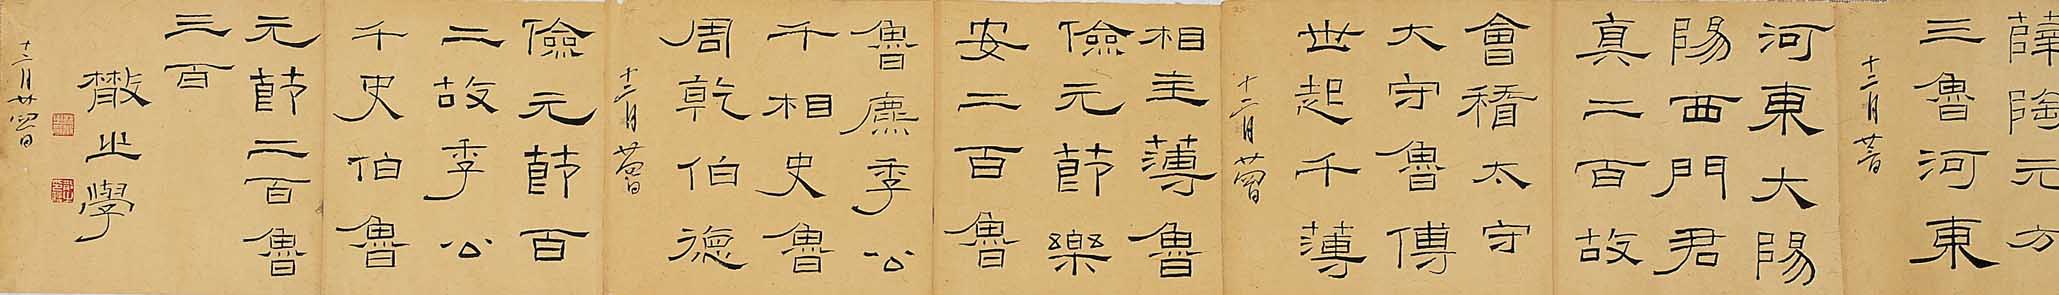 薛陶元方
三魯河東
十二月廿日
河東大陽
陽西門君
真二百故
會稽太守
大守魯傅
世起千薄
十二月廿日
相主薄魯
儉元節樂
安二百魯
魯麃季公
千相史魯
周乾伯德
十二月廿日
儉元節百
二故季公
千史伯魯
元節二百魯
三百
之學
十二月廿四日